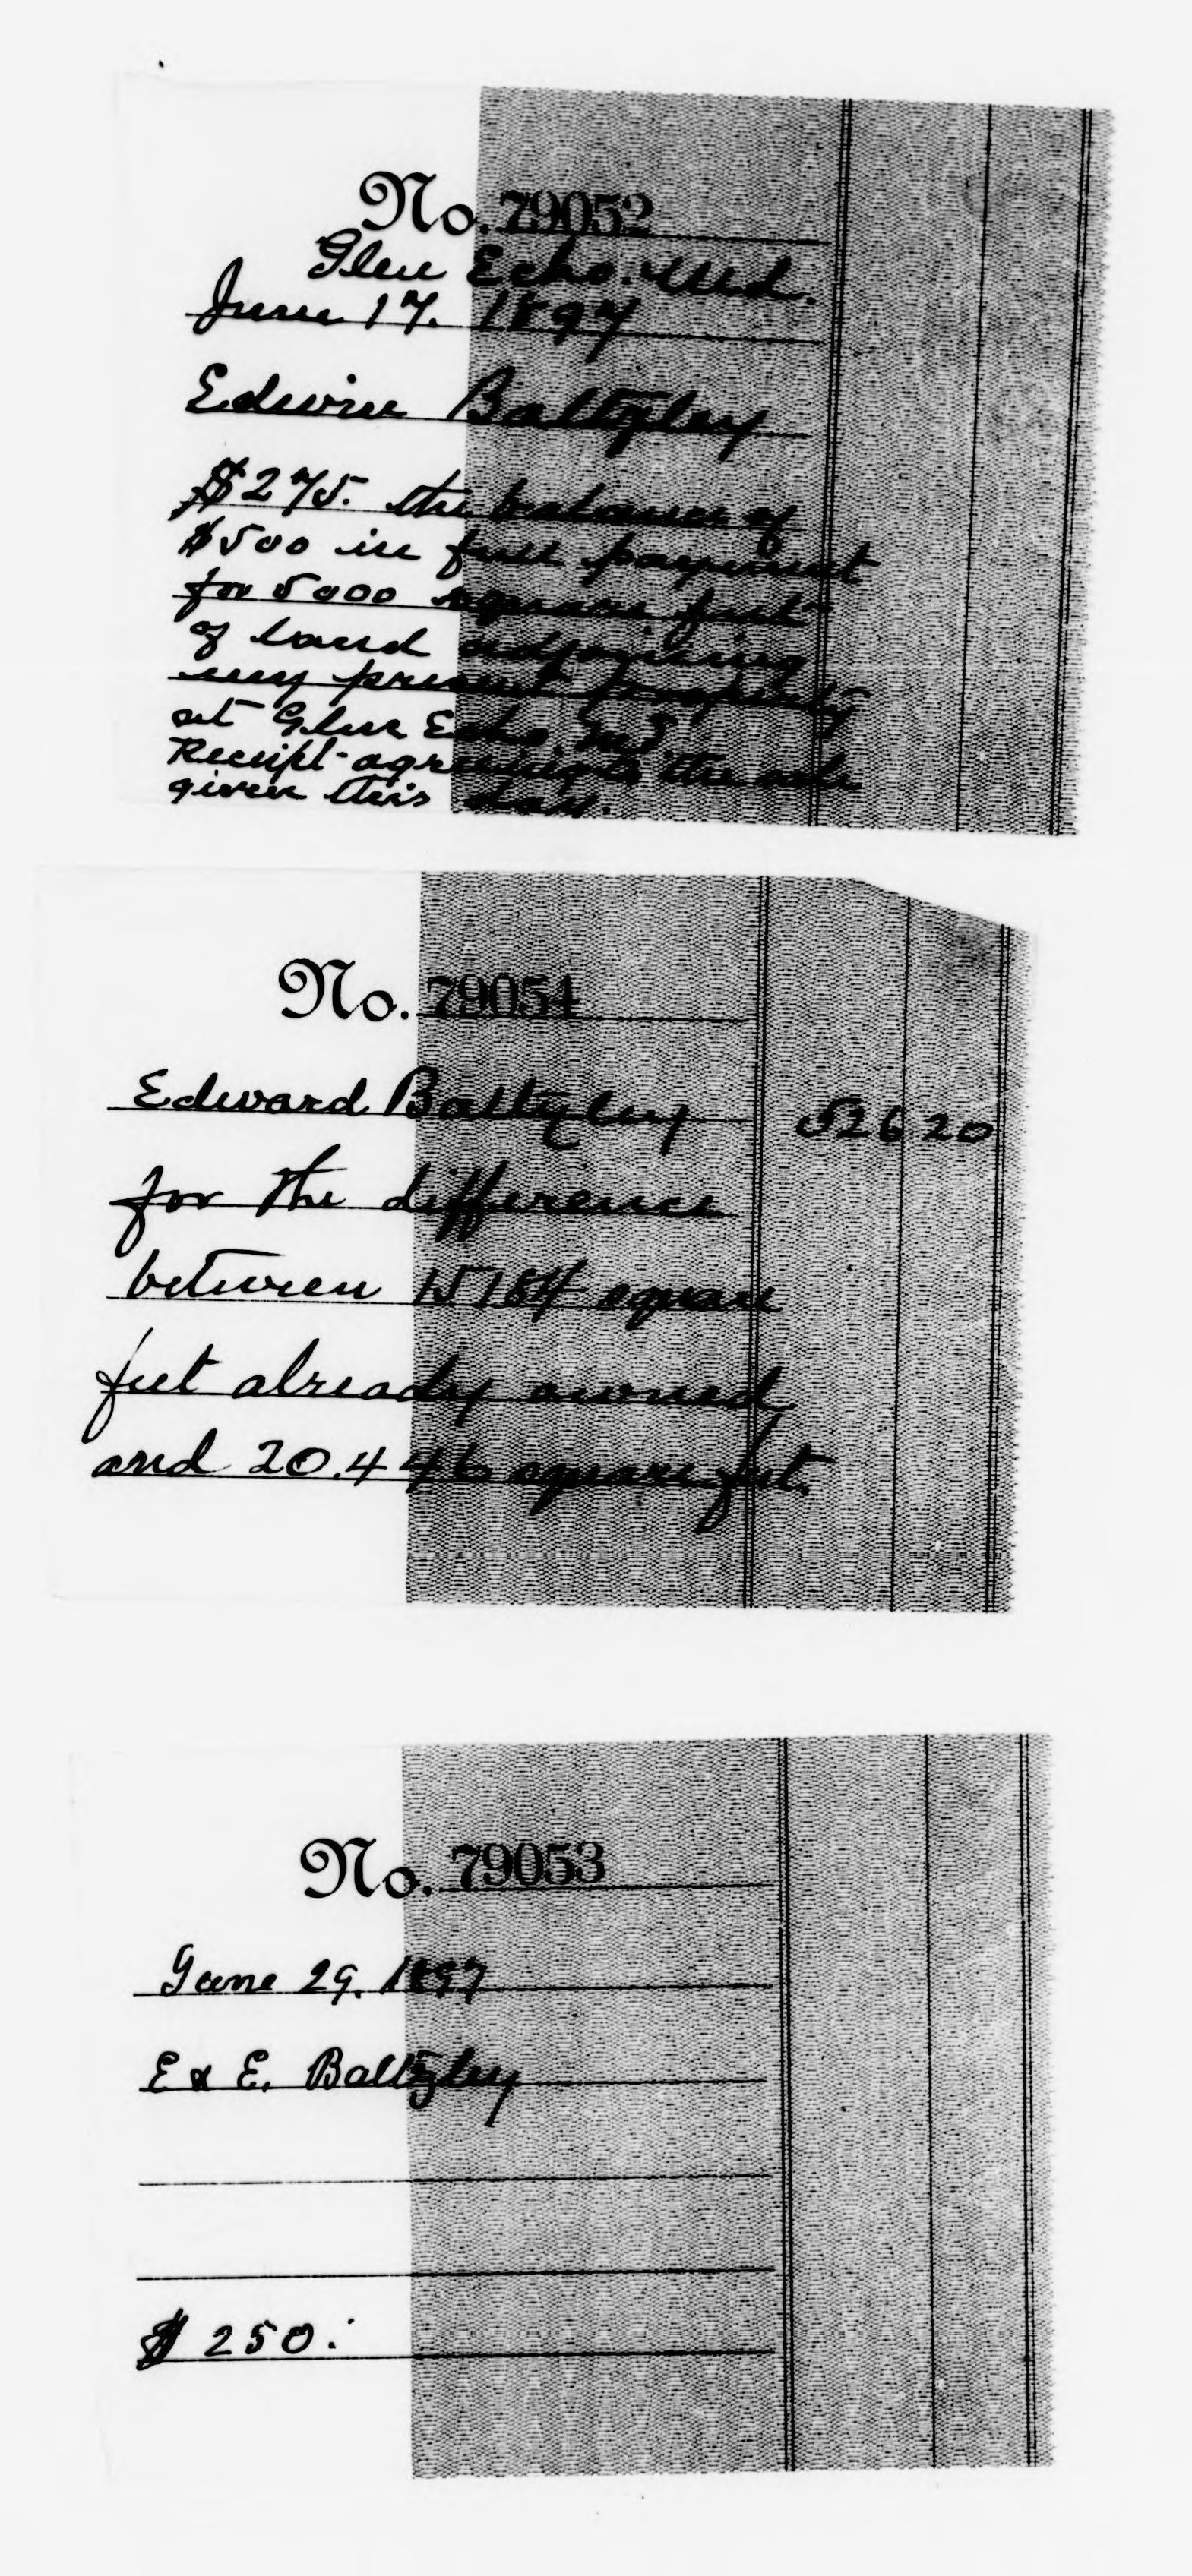 No. 79052
Glen Echo. Md.
June 17. 1897
Edwin Baltzley
$275. the balance of
$500 in full payment
for 5000 square feet
of land adjoining
my present property
at Glen Echo, Md.
Receipt agreeing to the sale
given this day.
No. 79054
Edward Baltzley 526 20
for the difference
between 15184 square
feet already owned
and 20.446 square feet.
No. 79053
June 29. 1897
E & E. Baltzley
$ 250.